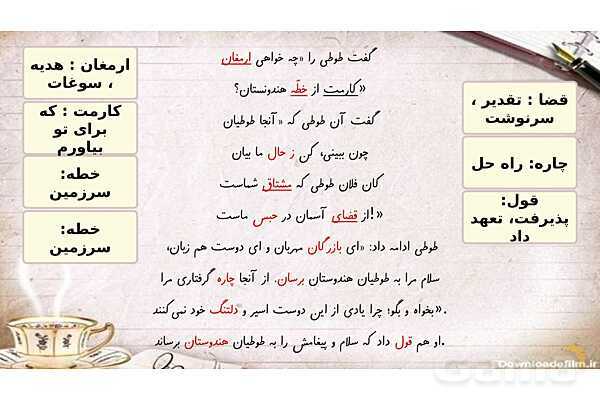 گفت طوطی را «چه خواهی ارمغان
کارمت از خطّه هندوستان؟»
گفت آن طوطی که «آنجا طوطیان
چون ببینی، کن ز حال ما بیان
کان فلان طوطی که مشتاق شماست
از قضای آسمان در حبس ماست!»
طوطی ادامه داد: «ای بازرگان مهربان و ای دوست هم زبان،
سلام مرا به طوطیان هندوستان برسان. از آنجا چاره گرفتاری مرا
بخواه و بگو؛ چرا یادی از این دوست اسیر و دلتنگ خود نمی‌کنند.»
او هم قول داد که سلام و پیغامش را به طوطیان هندوستان برساند.
قضا : تقدیر ،
سرنوشت
چاره: راه حل
قول:
پذیرفت، تعهد
داد
ارمغان : هدیه
، سوغات
کارمت : که
برای تو
بیاورم
خطه:
سرزمین
خطه:
سرزمین
Downloadefilm.ir